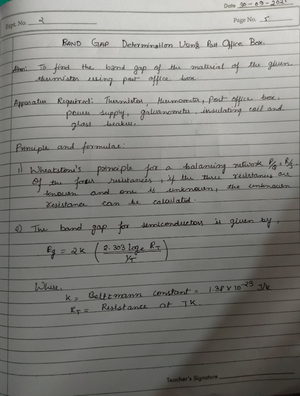 Date 30-09-2021
Expt. No. 2
Page No. 5
BAND GAP Determination Using Post Office Box.
Aim: To find the band gap of the material of the given
thermistor using post office box.
Apparatus Required: Thermistor, thermometer, Post office box,
power supply, galvanometer, insulating coil and
glass beaker.
Principle and formulae:
1) Wheatstone's principle for a balancing network P/Q = R/S.
Of the four resistances, if the three resistances are
known and one is unknown, the unknown
resistance can be calculated.
2) The band gap for semiconductors is given by,
Eg = 2k (2.303 log e RT / 1/T)
Where,
k = Boltzmann constant = 1.38 x 10^-23 J/k
RT = Resistance at T K.
Teacher's Signature